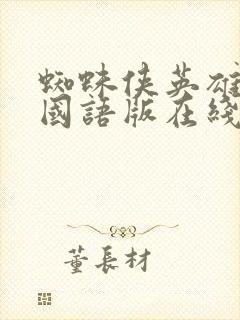 蜘蛛侠英雄
國語版在綫
董長材